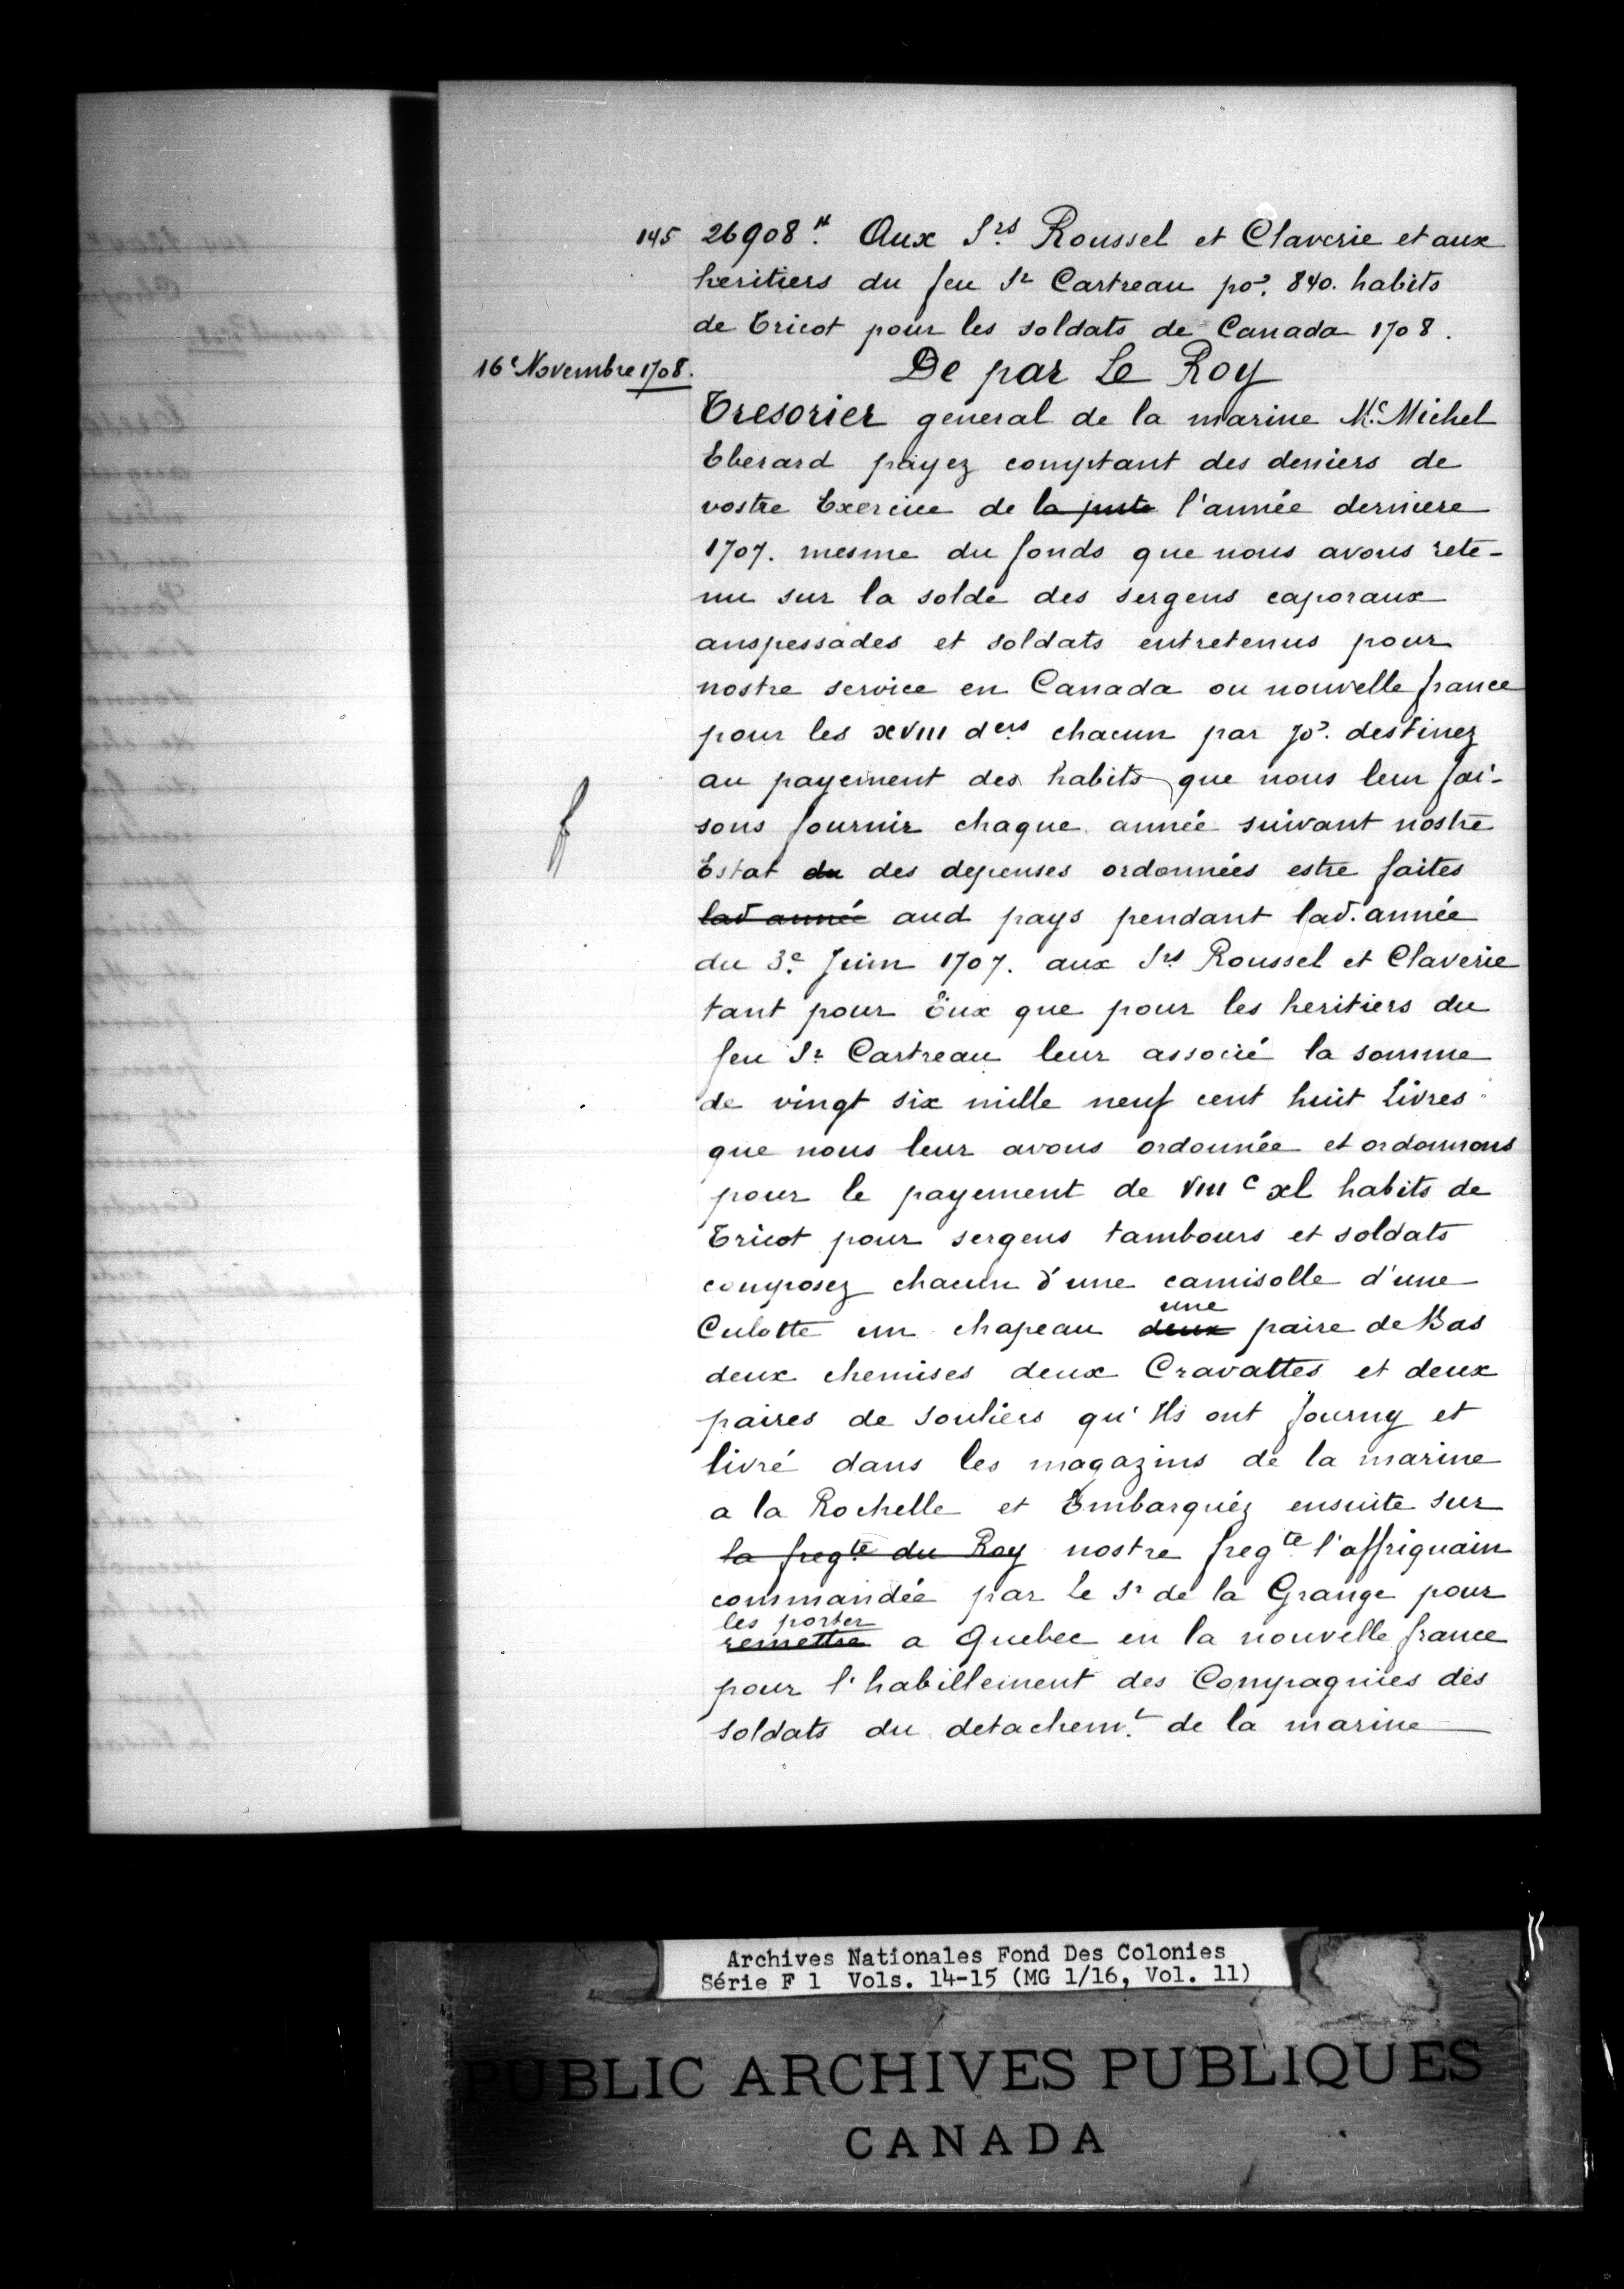 145 26908tt. Aux Srs Roussel et Claverie et aux
heritiers du feu Sr Cartreau por. 840. habits
de Tricot pour les soldats de Canada 1708.
16e Novembre 1708.
De par Le Roy
Tresorier general de la marine Me. Michel
Eberard payez comptant des deniers de
vostre Exercice de ~~la juste~~ l'année derniere
1707. mesme du fonds que nous avons rete-
nu sur la solde des sergens caporaux
anspessades et soldats entretenus pour
nostre service en Canada ou nouvelle france
pour les xviii ders chacun par jor. destinez
au payement des habits que nous leur fai-
sons fournir chaque année suivant nostre
Estat ~~du~~ des depenses ordonnées estre faites
~~lad année~~ aud pays pendant lad. année
du 3e. Juin 1707. aux Srs Roussel et Claverie
tant pour Eux que pour les heritiers du
feu Sr Cartreau leur associé la somme
de vingt six mille neuf cent huit Livres
que nous leur avons ordonnée et ordonnons
pour le payement de viii c xl habits de
Tricot pour sergens tambours et soldats
composez chacun d'une camisolle d'une
Culotte un chapeau ~~deux~~ une paire de Bas
deux chemises deux Cravattes et deux
paires de souliers qu'Ils ont fourny et
livré dans les magazins de la marine
a la Rochelle et Embarquéz ensuite sur
~~la fregte du Roy~~ nostre fregte l'affriquain
commandée par le Sr de la Grange pour
~~remettre~~ les porter a Quebec en la nouvelle france
pour l'habillement des Compagnies des
soldats du detachemt. de la marine
Archives Nationales Fond Des Colonies
Série F 1 Vols. 14-15 (MG 1/16, Vol. 11)
PUBLIC ARCHIVES PUBLIQUES
CANADA